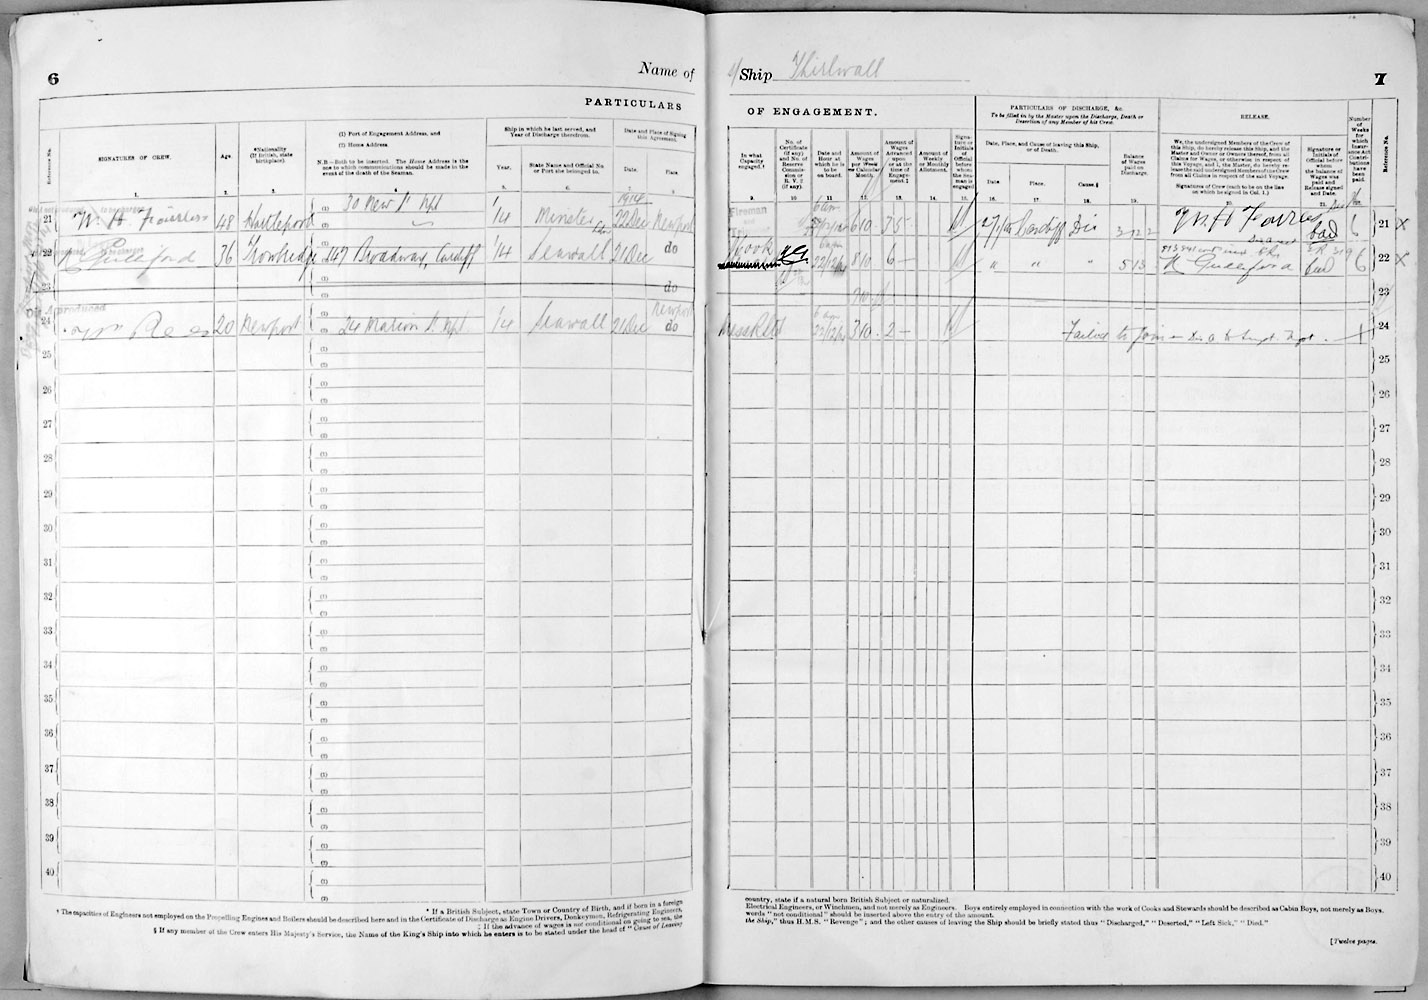 6
Name of
PARTICULARS
Reference No.
SIGNATURES OF CREW.
Age.
*Nationality
(If British, state
birthplace).
(1) Port of Engagement Address, and
(2) Home Address.
N.B.—Both to be inserted. The Home Address is the
one to which communications should be made in the
event of the death of the Seaman.
Ship in which he last served, and
Year of Discharge therefrom.
Year.
State Name and Official No.
or Port she belonged to.
Date and Place of Signing
this Agreement.
Date.
Place.
1. 2. 3. 4. 5. 6. 7. 8.
1914
21 48 Hartlepool 30 New St Npt 14 Minster 22 Dec Newport
22 36 Trowbridge 247 Broadway, Cardiff 14 Seawall 21 Dec do
23 do
Newport
24 Wm Rees 20 Newport 24 Marion St Npt. 14 Seawall 21 Dec do
25
26
27
28
29
30
31
32
33
34
35
36
37
38
39
40
* If a British Subject, state Town or Country of Birth, and if born in a foreign
† The capacities of Engineers not employed on the Propelling Engines and Boilers should be described here and in the Certificate of Discharge as Engine Drivers, Donkeymen, Refrigerating Engineers,
‡ If the advance of wages is not conditional on going to sea, the
§ If any member of the Crew enters His Majesty's Service, the Name of the King's Ship into which he enters is to be stated under the head of "Cause of Leaving
Ship Thirlwall
7
OF ENGAGEMENT.
PARTICULARS OF DISCHARGE, &c.
To be filled in by the Master upon the Discharge, Death or
Desertion of any Member of his Crew.
RELEASE.
In what
Capacity
engaged.†
No. of
Certificate
(if any)
and No. of
Reserve
Commis-
sion or
R. V. 2
(if any).
Date and
Hour at
which he
is to be
on board.
Amount of
Wages
per Week
or Calendar
Month.
Amount of
Wages
Advanced
upon
or at the
time of
Engage-
ment.‡
Amount of
Weekly
or Monthly
Allotment.
Signa-
ture or
Initials
of
Official
before
whom
the Sea-
man is
engaged.
Date, Place, and Cause of leaving this Ship,
or of Death.
Date.
Place.
Cause.§
Balance
of Wages
paid on
Discharge.
We, the undersigned Members of the Crew of
this Ship, do hereby release this Ship, and the
Master and Owner or Owners thereof, from all
Claims for Wages, or otherwise, in respect of
this Voyage, and I, the Master, do hereby re-
lease the said undersigned Members of the Crew
from all Claims in respect of the said Voyage.
Signatures of Crew (each to be on the line
on which he signed in Col. 1.)
Signature or
Initials of
Official before
whom
the balance of
Wages was
paid and
Release signed
and Date.
Number
of
Weeks
for
which
Insur-
ance Act
Contri-
butions
have been
paid.
Reference No.
9. 10. 11. 12. 13. 14. 15. 16. 17. 18. 19. 20. 21.
Fireman
and 6 am
6 10 3 5 Cardiff Dis 3 12 2 6 21 X
6 am
Cook 22/12 8 10 6 — " " " 5 13 6 22 X
23
6 am
22/12 3 10 2 — Failed to join 24
25
26
27
28
29
30
31
32
33
34
35
36
37
38
39
40
country, state if a natural born British Subject or naturalized.
Electrical Engineers, or Winchmen, and not merely as Engineers. Boys entirely employed in connection with the work of Cooks and Stewards should be described as Cabin Boys, not merely as Boys.
words "not conditional" should be inserted above the entry of the amount.
the Ship," thus H.M.S. "Revenge"; and the other causes of leaving the Ship should be briefly stated thus "Discharged," "Deserted," "Left Sick," "Died."
[Twelve pages.